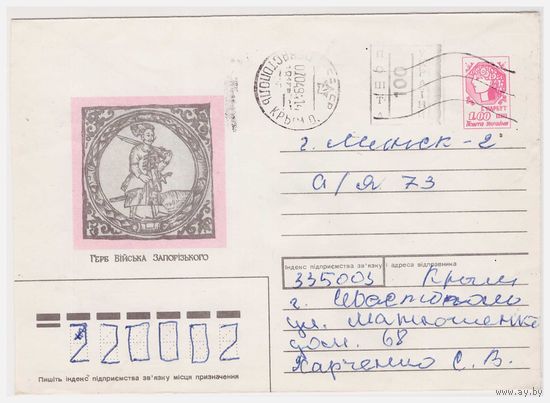 СЕВАСТОПОЛЬ КРЫМ. О.
ПОШТА
100
1.00
Пошта України
г. Минск-2
а/я 73
ГЕРБ ВІЙСЬКА ЗАПОРІЗЬКОГО
Індекс підприємства зв'язку і адреса відправника
335003 Крым
г. Севастополь
ул. Матюшенко
дом. 68
Харченко С. В.
220002
Пишіть індекс підприємства зв'язку місця призначення
www.ay.by